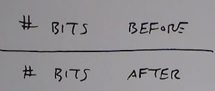 # BITS BEFORE
# BITS AFTER